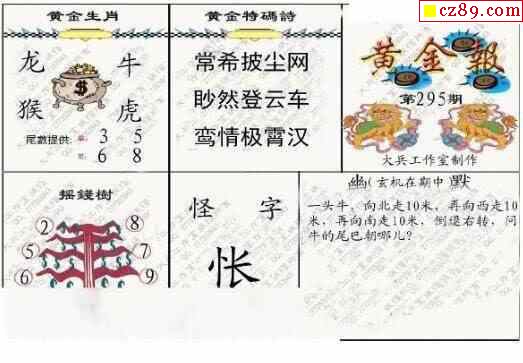 cz89.com
黄金生肖
龙 牛
猴 虎
$
尾數提供: 單: 3 5
雙: 6 8
黄金特碼詩
常希披尘网
眇然登云车
鸾情极霄汉
黄金報
第295期
大兵工作室制作
摇錢樹
2 8
0 5
1 7
6 9
怪 字
怅
幽(玄机在期中)默
一头牛，向北走10米，再向西走10
米，再向南走10米，倒退右转，问
牛的尾巴朝哪儿?